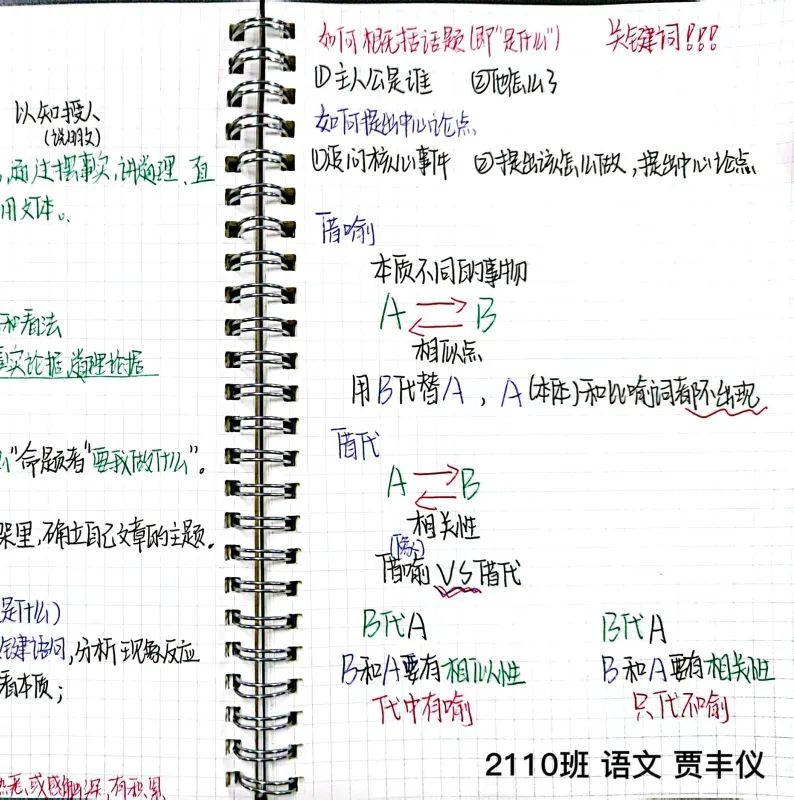 以知授人
(说明文)
,通过摆事实,讲道理、直
用文体。
和看法
事实论据,道理论据
"命题者"要我做什么"。
架里,确立自己文章的主题。
是什么)
关键词,分析现象反应
看本质;
有积累
如何概括话题(即"是什么") 关键词!!!
①主人公是谁 ②他怎么了
如何提出中心论点
①追问核心事件 ②提出该怎么做,提出中心论点
借喻
本质不同的事物
A B
相似点
用B代替A,A(本体)和比喻词都不出现
借代
A B
相关性
借喻 VS 借代
B代A B代A
B和A要有相似性 B和A要有相关性
代中有喻 只代不喻
2110班 语文 贾丰仪